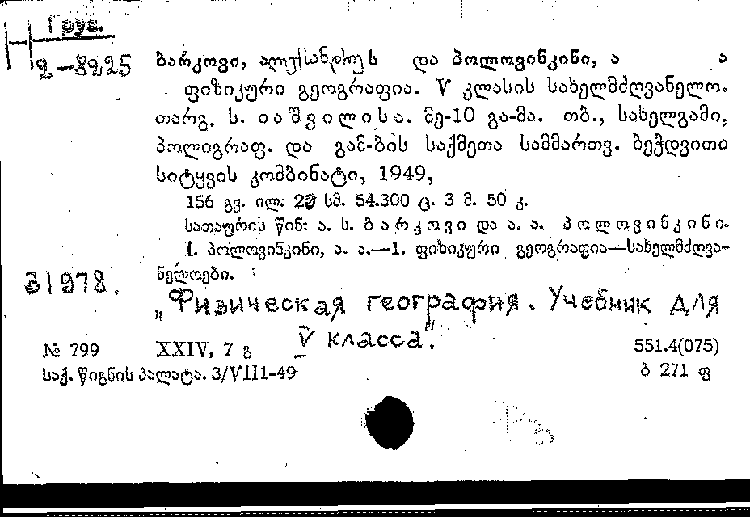 Груз.
2-3225
ბარკოვი, ალექსანდრეს და პოლოვინკინი, ა ა
ფიზიკური გეოგრაფია. V კლასის სახელმძღვანელო.
თარგ. ს. იაშვილისა. მე-10 გა-მა. თბ., სახელგამი,
პოლიგრაფ. და გამ-ბის საქმეთა სამმართვ. ბეჭდვითი
სიტყვის კომბინატი, 1949,
156 გვ. ილ. სმ. 54.300 ც. 3 მ. 50 კ.
სათაურის წინ: ა. ს. ბარკოვი და ა. ა. პოლოვინკინი.
I. პოლოვინკინი, ა. ა.—1. ფიზიკური გეოგრაფია—სახელმძღვა-
ნელოები.
31978.
„Физическая география. Учебник для
V класса."
№ 799 XXIV, 7 გ 551.4(075)
საქ. წიგნის პალატა. 3/VIII-49 ბ 271 ფ